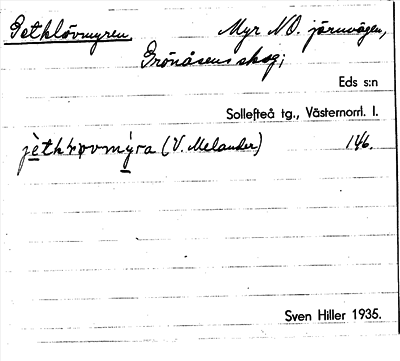 Getklövmyren Myr NO. järnvägen,
Grönåsens skog;
Eds s:n
Sollefteå tg., Västernorrl. l.
(V. Melander) 146.
Sven Hiller 1935.